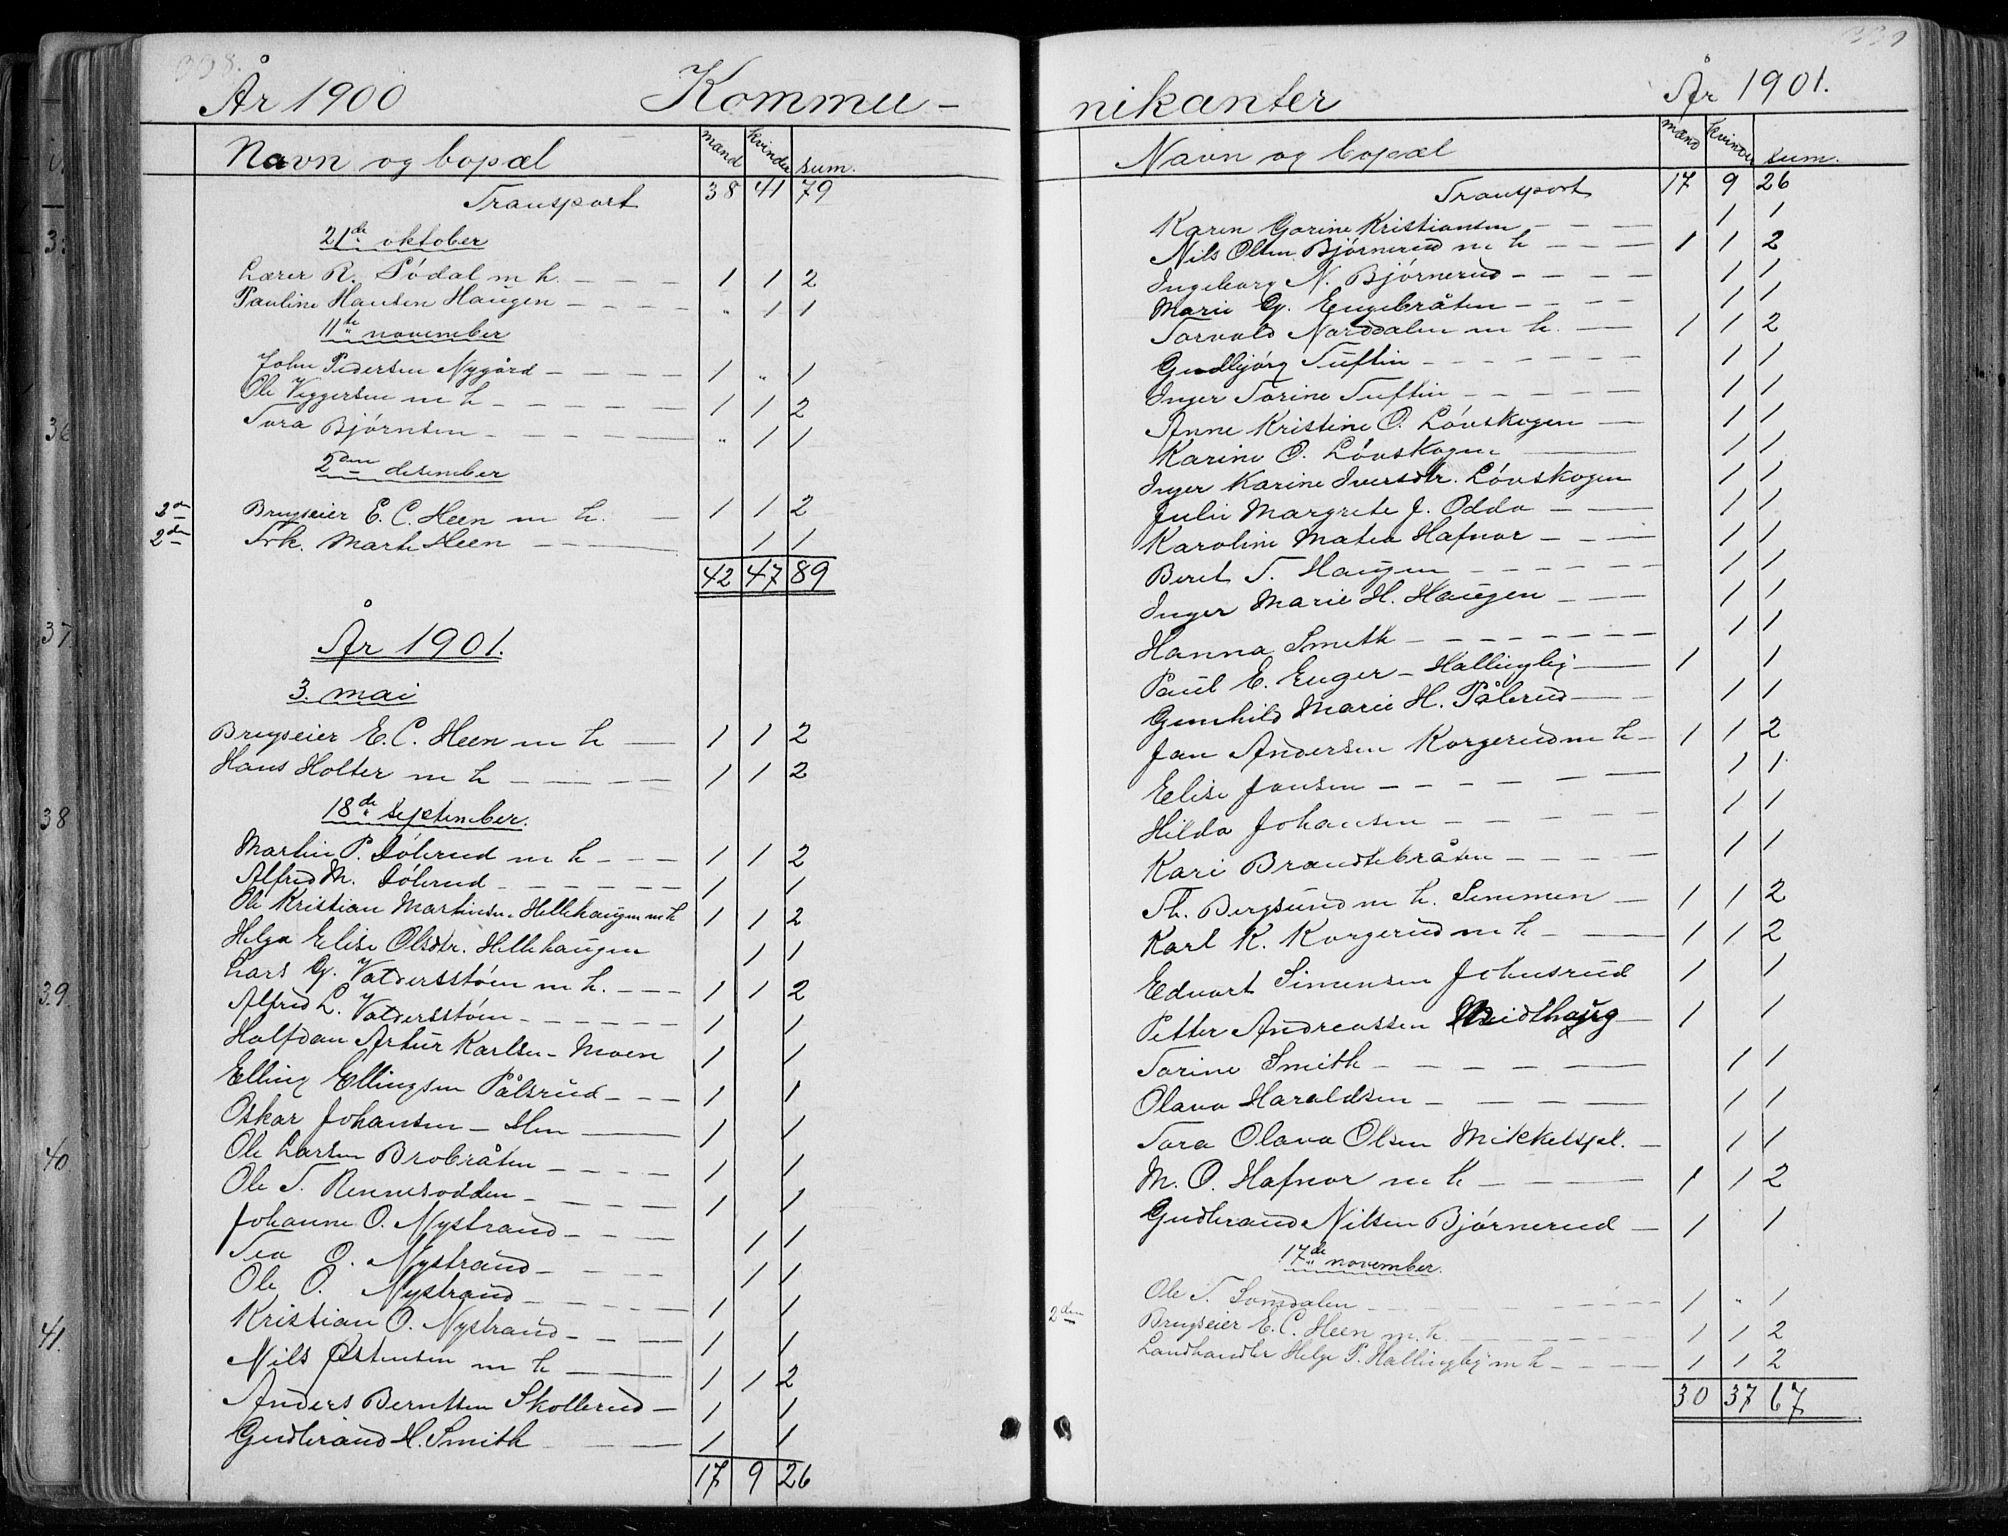 338.
År 1900 Kommu-
Navn og bopæl mænd kvinder sum.
Transport 38 41 79
21de oktober
Lærer R. Södal m h. 1 1 2
Pauline Hansen Haugen " 1 1
11te november
John Pedersen Nygård 1 " 1
Ole Viggersen m h 1 1 2
Tora Bjørnsen " 1 1
2den desember
2den Brugseier E. C. Heen m h. 1 1 2
2den Frk. Marte Heen 1 1
42 47 89
År 1901.
3. mai
Brugseier E. C. Heen m h 1 1 2
Hans Holter m h 1 1 2
18de september.
Martin P. Dölerud m h 1 1 2
Alfred M. Dölerud 1 1
Ole Kristian Martinsen Hellehaugen m h 1 1 2
Helga Elise Olsdtr. Hellehaugen 1 1
Lars G. Valdersstøen m h. 1 1 2
Alfred L. Valdersstøen 1 1
Halfdan Artur Karlsen - Moen 1 1
Elling Ellingsen Pålsrud 1 1
Oskar Johansen - Hen 1 1
Ole Larsen Brobråten 1 1
Ole T. Rennesodden 1 1
Johanne O. Nystrand 1 1
Tea O. Nystrand 1 1
Ole O. Nystrand 1 1
Kristian O. Nystrand 1 1
Nils Østensen m h 1 1 2
Anders Berntsen Skollerud 1 1
Gudbrand H. Smith 1 1
17 9 26
339
nikanter År 1901.
Navn og bopæl mænd kvinder sum.
Transport 17 9 26
Karen Gorine Kristiansen 1 1
Nils Olsen Bjørnerud m h 1 1 2
Ingeborg N. Bjørnerud 1 1
Marie G. Engebråten 1 1
Torvald Norddalen m h. 1 1 2
Gudbjørg Tuftin 1 1
Inger Torine Tuftin 1 1
Anne Kristine O. Lövskogen 1 1
Karine O. Lövskogen 1 1
Inger Karine Iversdtr. Lövskogen 1 1
Julie Margrete J. Odda 1 1
Karoline Matea Hafnor 1 1
Beret T. Haugen 1 1
Inger Marie H. Haugen 1 1
Hanna Smith 1 1
Paul E. Enger - Hallingby 1 1
Gunhild Marie H. Pålsrud 1 1
Jan Andersen Korgerud m h 1 1 2
Elise Jansen 1 1
Hilda Johansen 1 1
Kari Brandtebråten 1 1
Th. Bergsund m h. Semmen 1 1 2
Karl K. Korgerud m h 1 1 2
Edvart Simensen Johnsrud 1 1
Petter Andreassen Midthaug 1 1
Torine Smith 1 1
Olava Haraldsen 1 1
Tora Olava Olsen Mikkelspl. 1 1
M. O. Hafnor m h 1 1 2
Gudbrand Nilsen Bjørnerud 1 1
17de november.
Ole T. Somdalen 1 " 1
2den Brugseier E. C. Heen m. h. 1 1 2
Landhandler Helge P. Hallingby m h 1 1 2
30 37 67